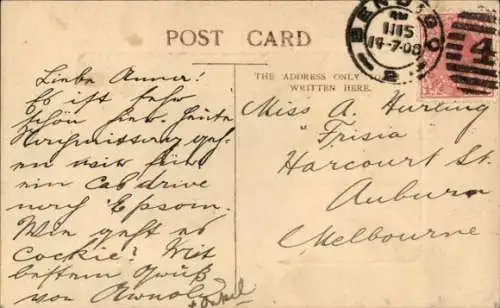 POST CARD
BENDIGO
11 15
14-7-08
4
THE ADDRESS ONLY
WRITTEN HERE.
Liebe Anna!
Es ist sehr
schön hier. Heute
Nachmittag geh-
en wir für
ein Cab drive
nach Epsom.
Wie geht es
Cockie? Mit
bestem Gruß
von Arnold
+ Onkel
Miss A. Hurling
"Frisia
Harcourt St.
Auburn
Melbourne